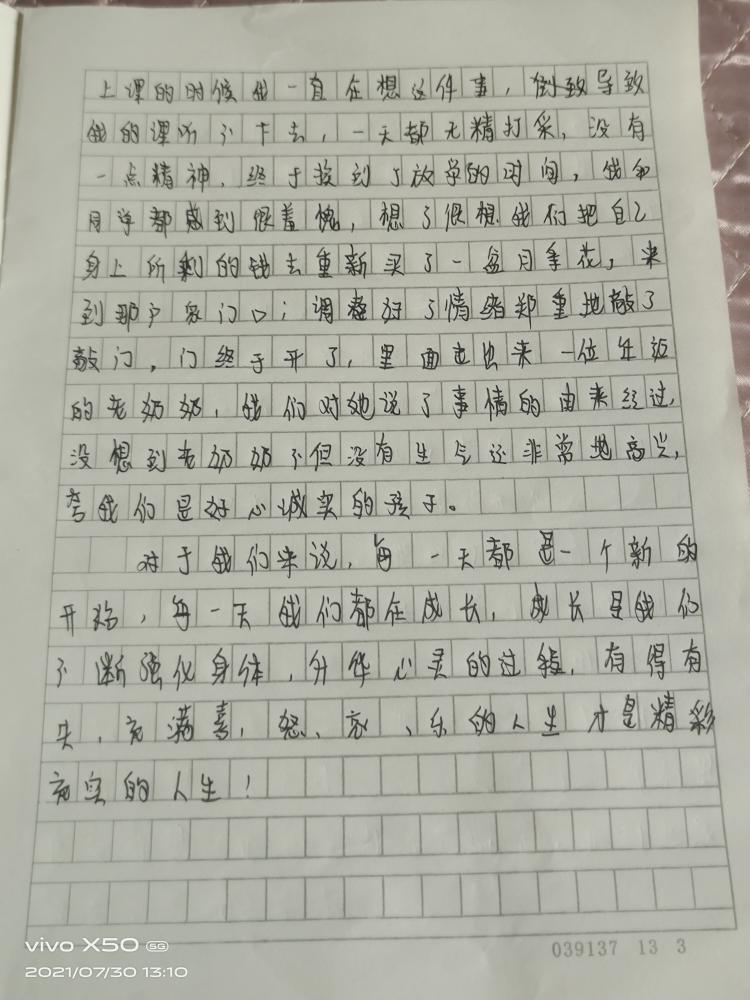 上课的时候我一直在想这件事，倒致导致
我的课听不下去，一天都无精打采，没有
一点精神，终于挨到了放学的时间，我和
同学都感到很羞愧，想了很想我们把自己
身上所剩的钱去重新买了一盆月季花，来
到那户家门口；调整好了情绪郑重地敲了
敲门，门终于开了，里面走出来一位年迈
的老奶奶，我们对她说了事情的由来经过，
没想到老奶奶不但没有生气还非常地高兴，
夸我们是好心诚实的孩子。
对于我们来说，每一天都是一个新的
开始，每一天我们都在成长，成长是我们
不断强化身体，升华心灵的过程，有得有
失，充满喜，怒、哀、乐的人生才是精彩
充实的人生！
vivo X50 5G
2021/07/30 13:10
039137 13 3